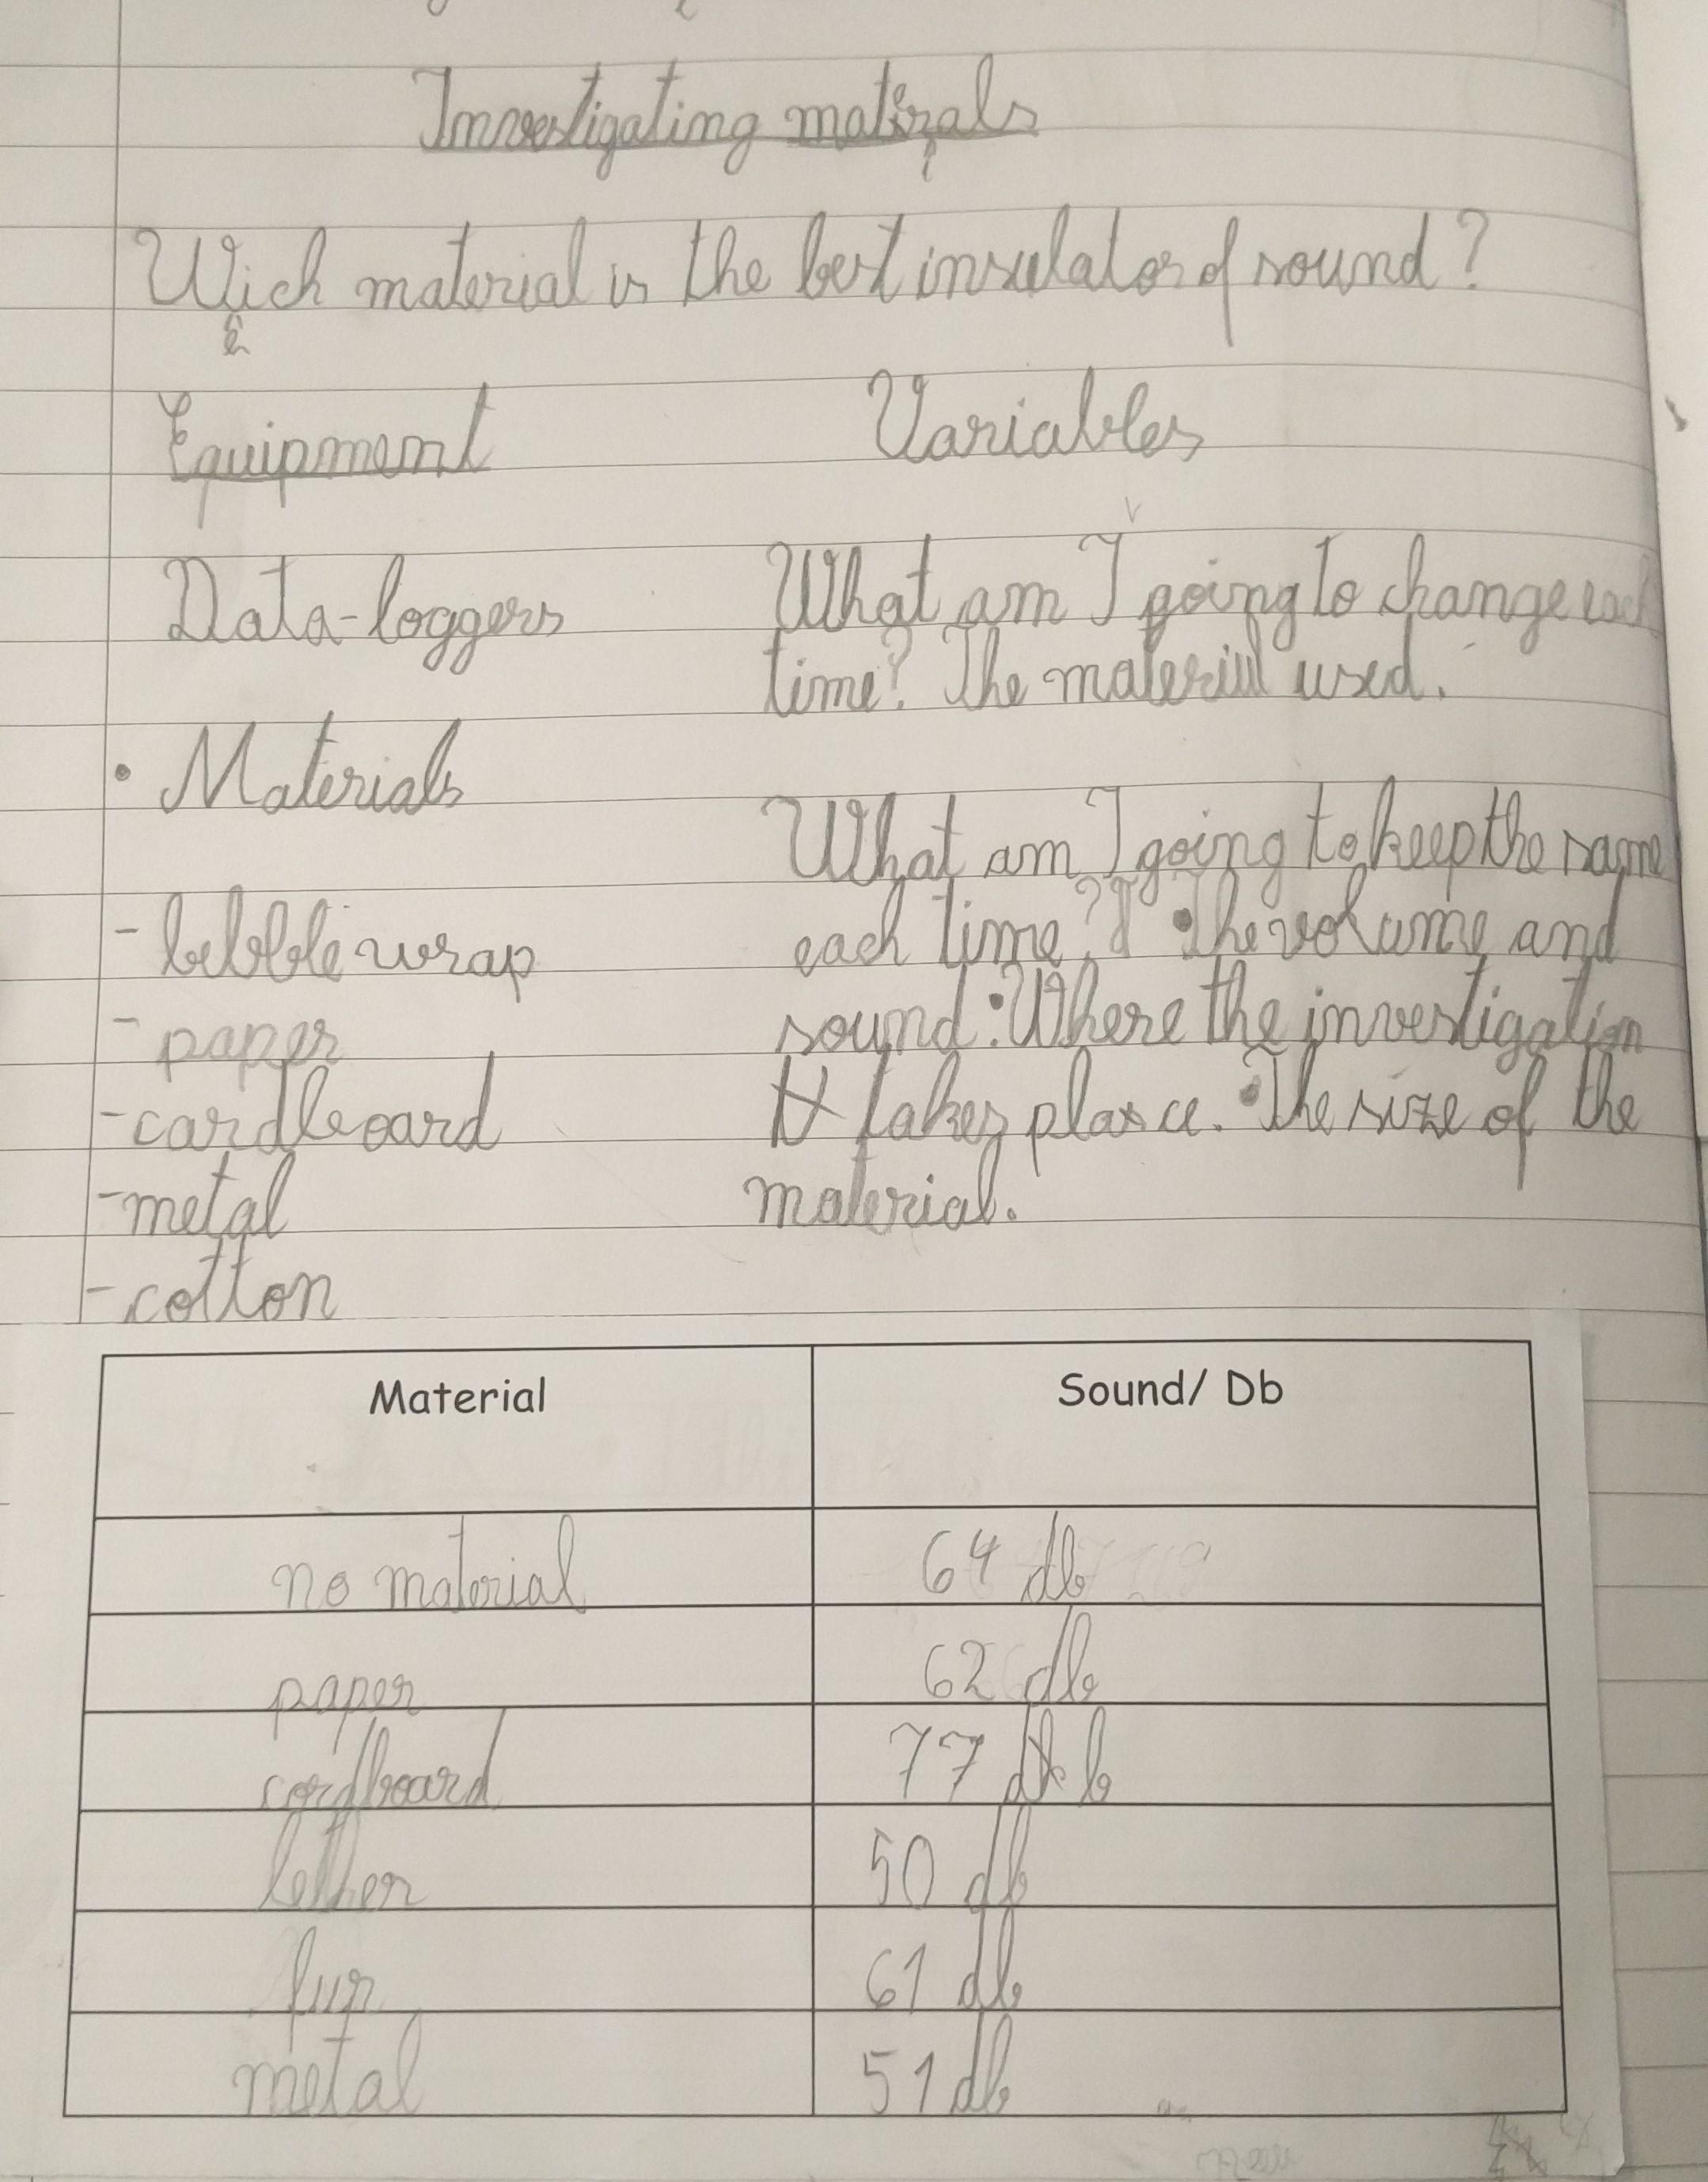 Investigating matirals
Wich material is the best insulator of sound?
Equipment
Variables
Data-loggers
What am I going to change each
time? The material used.
• Materials
What am I going to keep the same
each time? • The volume and
sound • Where the investigation
takes place. • The size of the
material.
- bubble wrap
- paper
- cardboard
- metal
- cotton
Material Sound/ Db
no material 64 db
paper 62 db
cardboard 77 db
lether 50 db
fur 61 db
metal 51 db